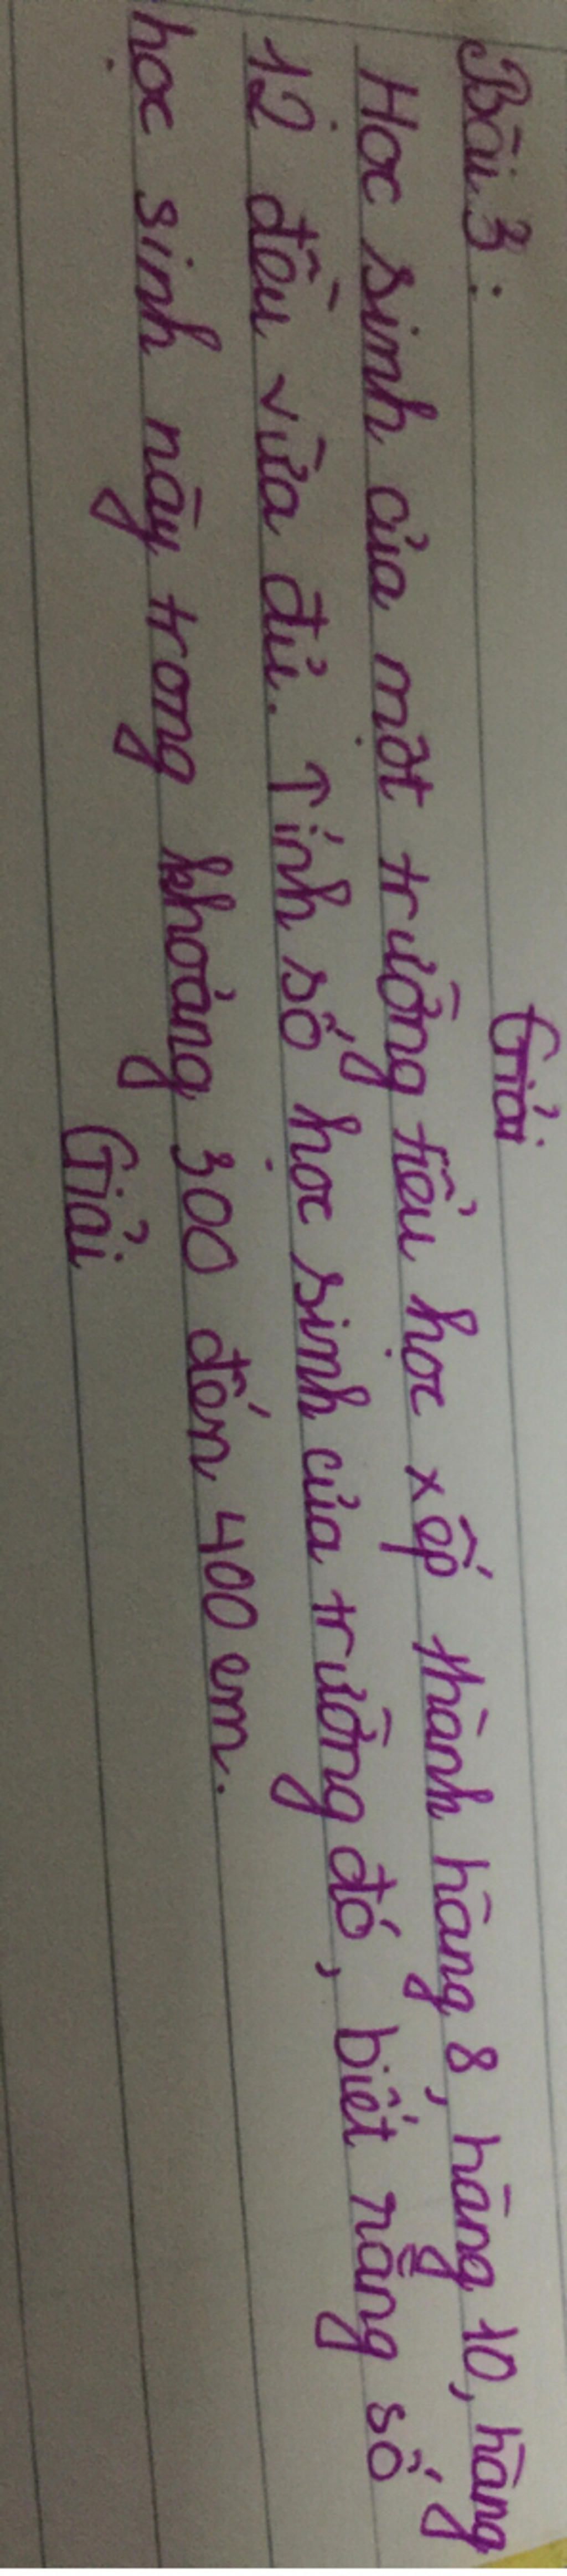 Giải
Bài 3:
Học sinh của một trường tiểu học xếp thành hàng 8, hàng 10, hàng
12 đều vừa đủ. Tính số học sinh của trường đó, biết rằng số
học sinh này trong khoảng 300 đến 400 em.
Giải